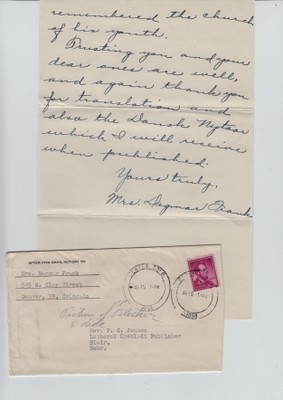 remembered the church
of his youth.
Trusting you and your
dear ones are well,
and again thank you
for translation and
also the Dansk Nytaar
which I will receive
when published.
Yours truly,
Mrs. Dagmar Frank
AFTER FIVE DAYS, RETURN TO
Mrs. Dagmar Frank
Clay Street
Denver, Colorado
Rev. P. C. Jensen
Publisher
Blair,
Nebr.